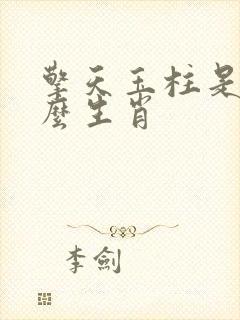 擎天玉柱是
麼生肖
李劍